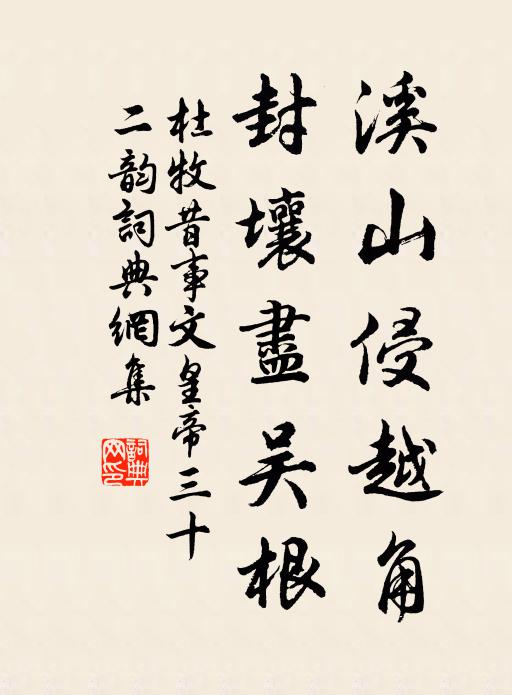 溪山侵越角
封壤盡吴根
杜牧昔事文皇帝三十
二韵詞典網集
詞典
网印